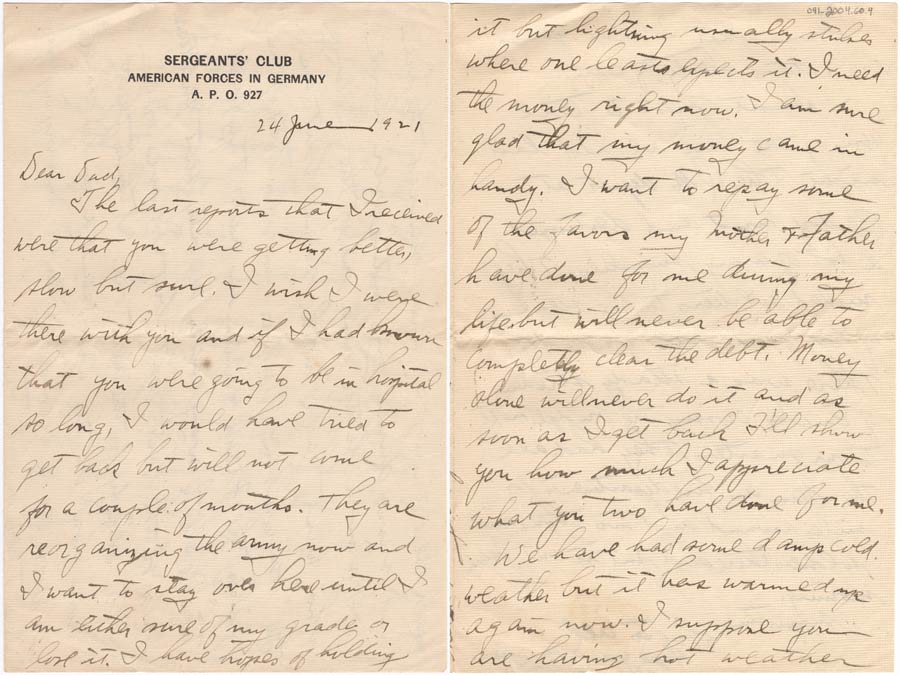 SERGEANTS' CLUB
AMERICAN FORCES IN GERMANY
A. P. O. 927
24 June 1921
Dear Dad,
The last reports that I received
were that you were getting better,
slow but sure. I wish I were
there with you and if I had known
that you were going to be in hospital
so long, I would have tried to
get back but will not come
for a couple of months. They are
reorganizing the army now and
I want to stay over here until I
am either sure of my grade or
lose it. I have hopes of holding
091-2004.60.9
it but lightning usually strikes
where one leasts expects it. I need
the money right now. I am sure
glad that my money came in
handy. I want to repay some
of the favors my Mother & Father
have done for me during my
life but will never be able to
completly clear the debt. Money
alone will never do it and as
soon as I get back I'll show
you how much I appreciate
what you two have done for me.
We have had some damp cold
weather but it has warmed up
again now. I suppose you
are having hot weather